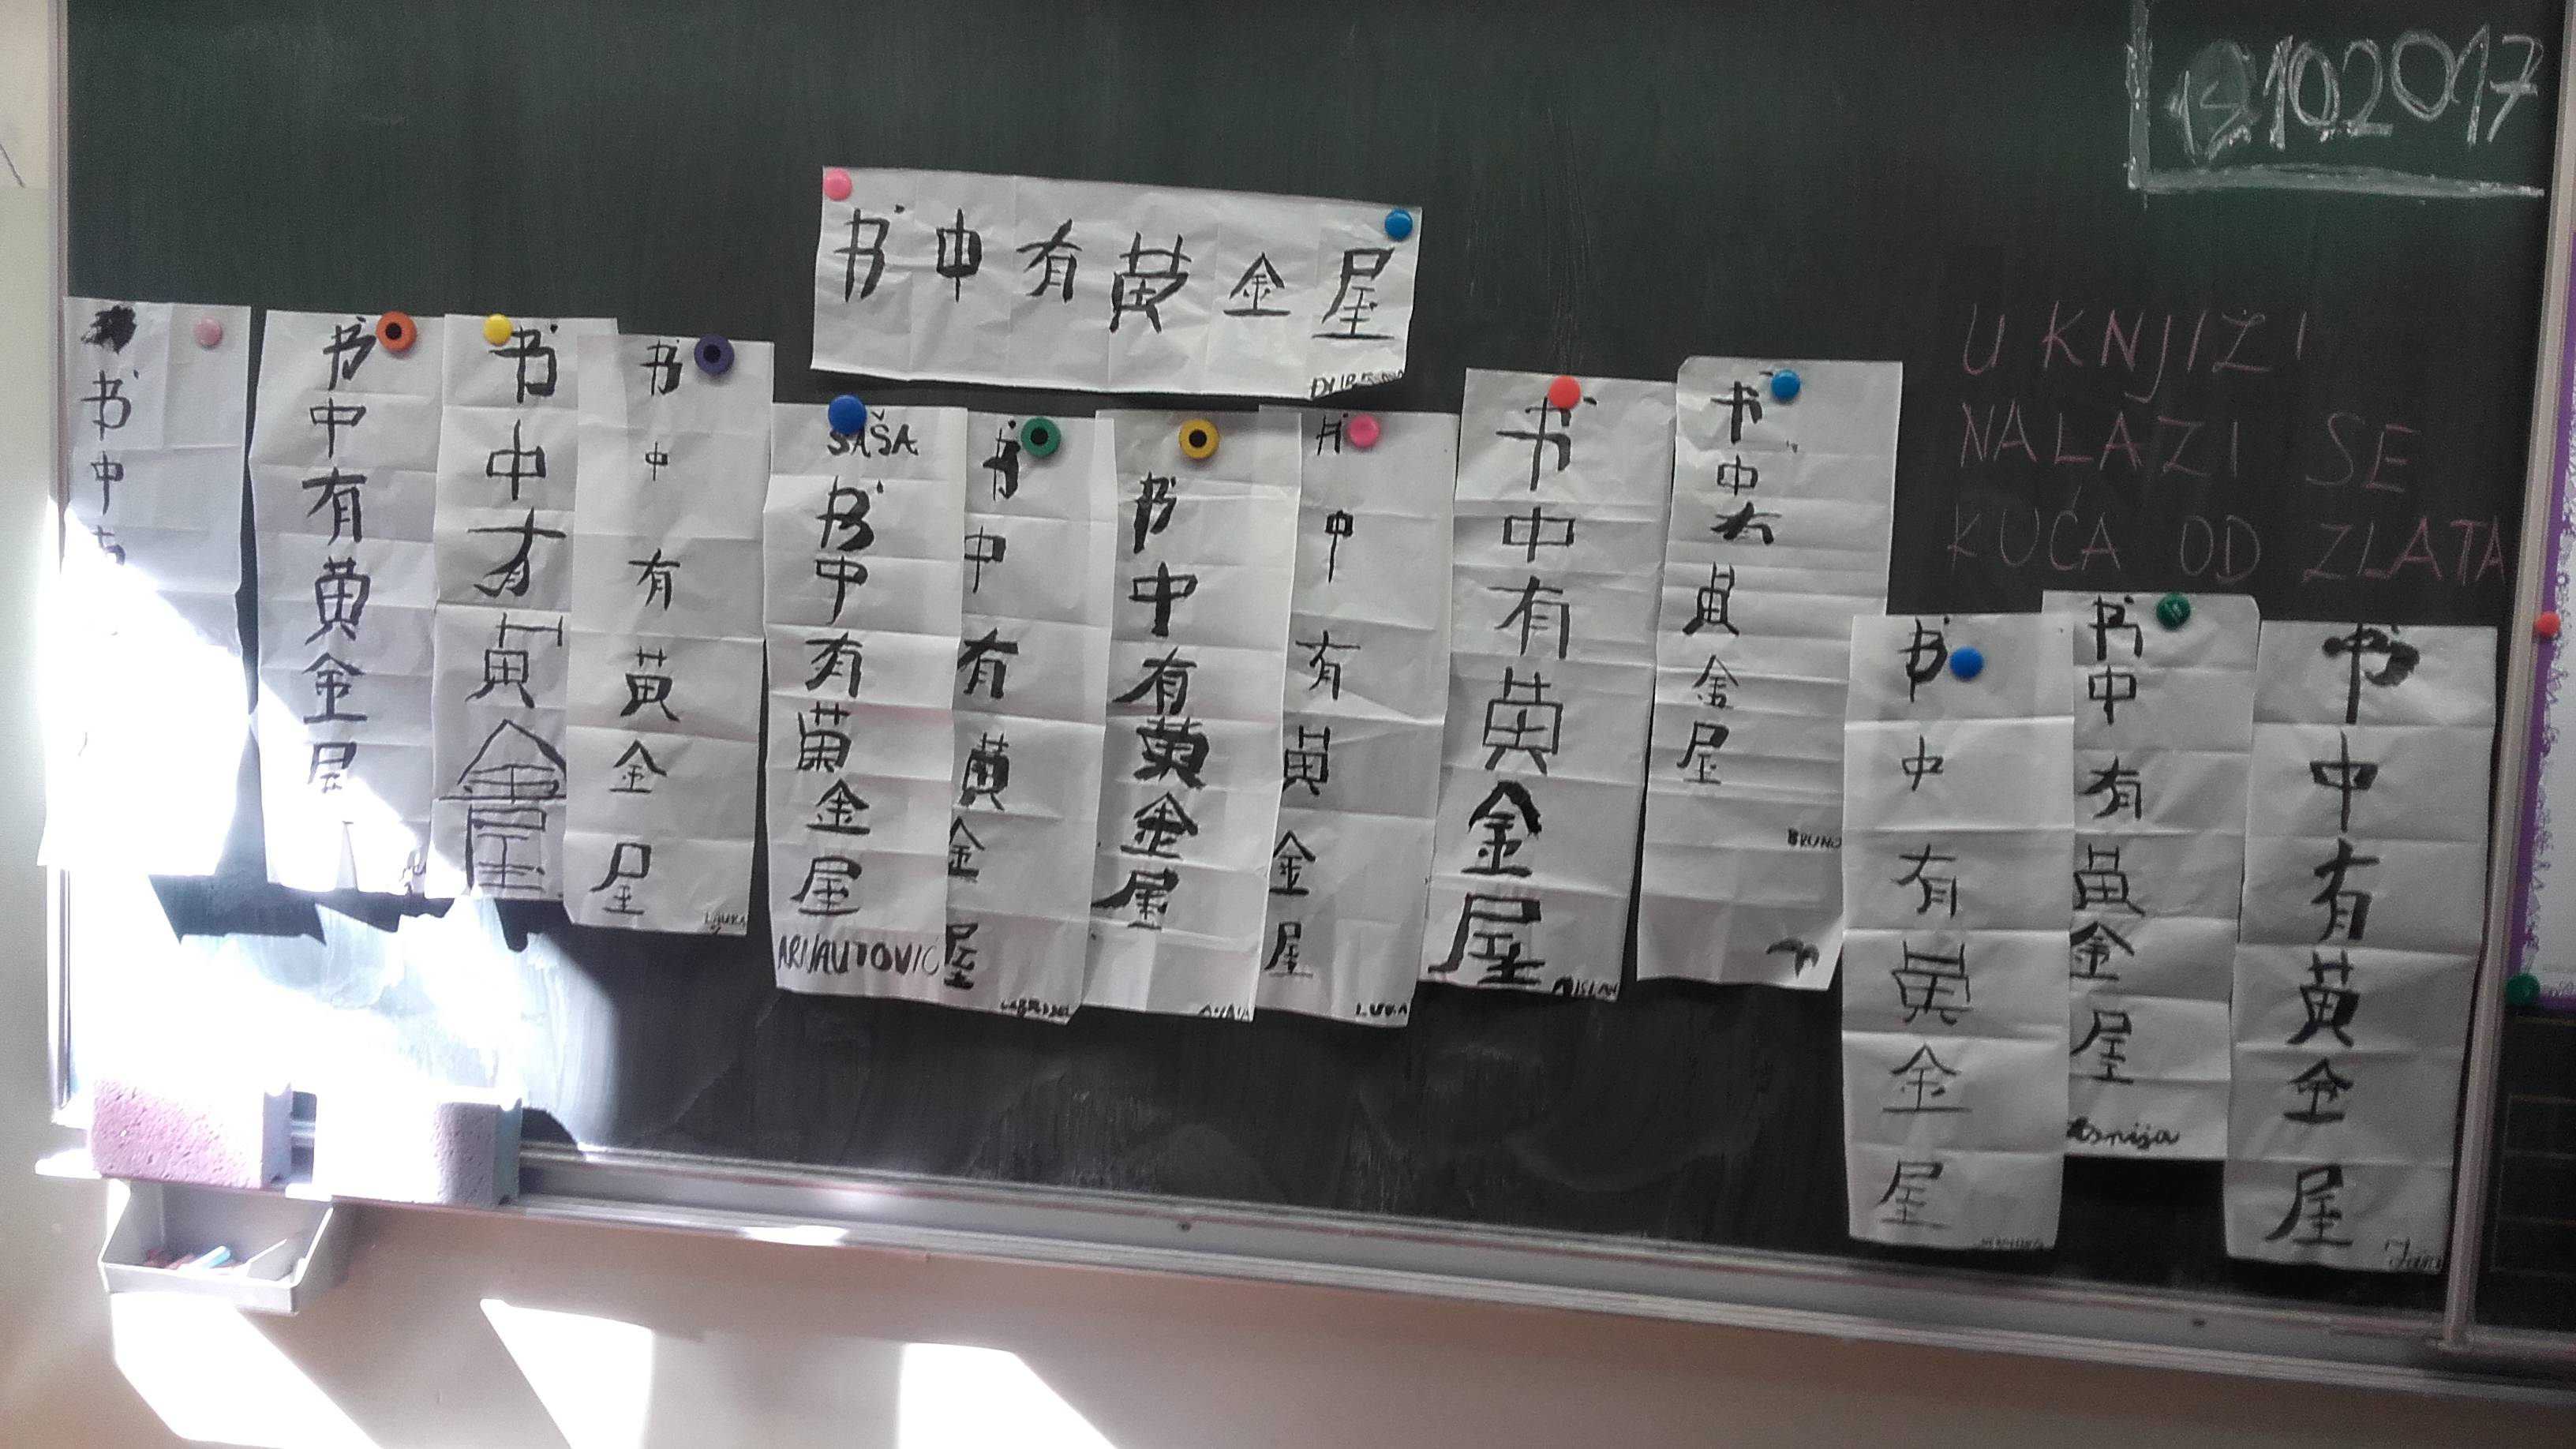 13.10.2017
书中有黄金屋
U KNJIZI
NALAZI SE
KUĆA OD ZLATA
书中
书中有黄金屋
书中有黄金屋
书中有黄金屋
SAŠA
书中有黄金屋
ARNAUTOVIC
书中有黄金屋
书中有黄金屋
书中有黄金屋
LUKA
书中有黄金屋
书中有黄金屋
BRUNO
书中有黄金屋
书中有黄金屋
书中有黄金屋